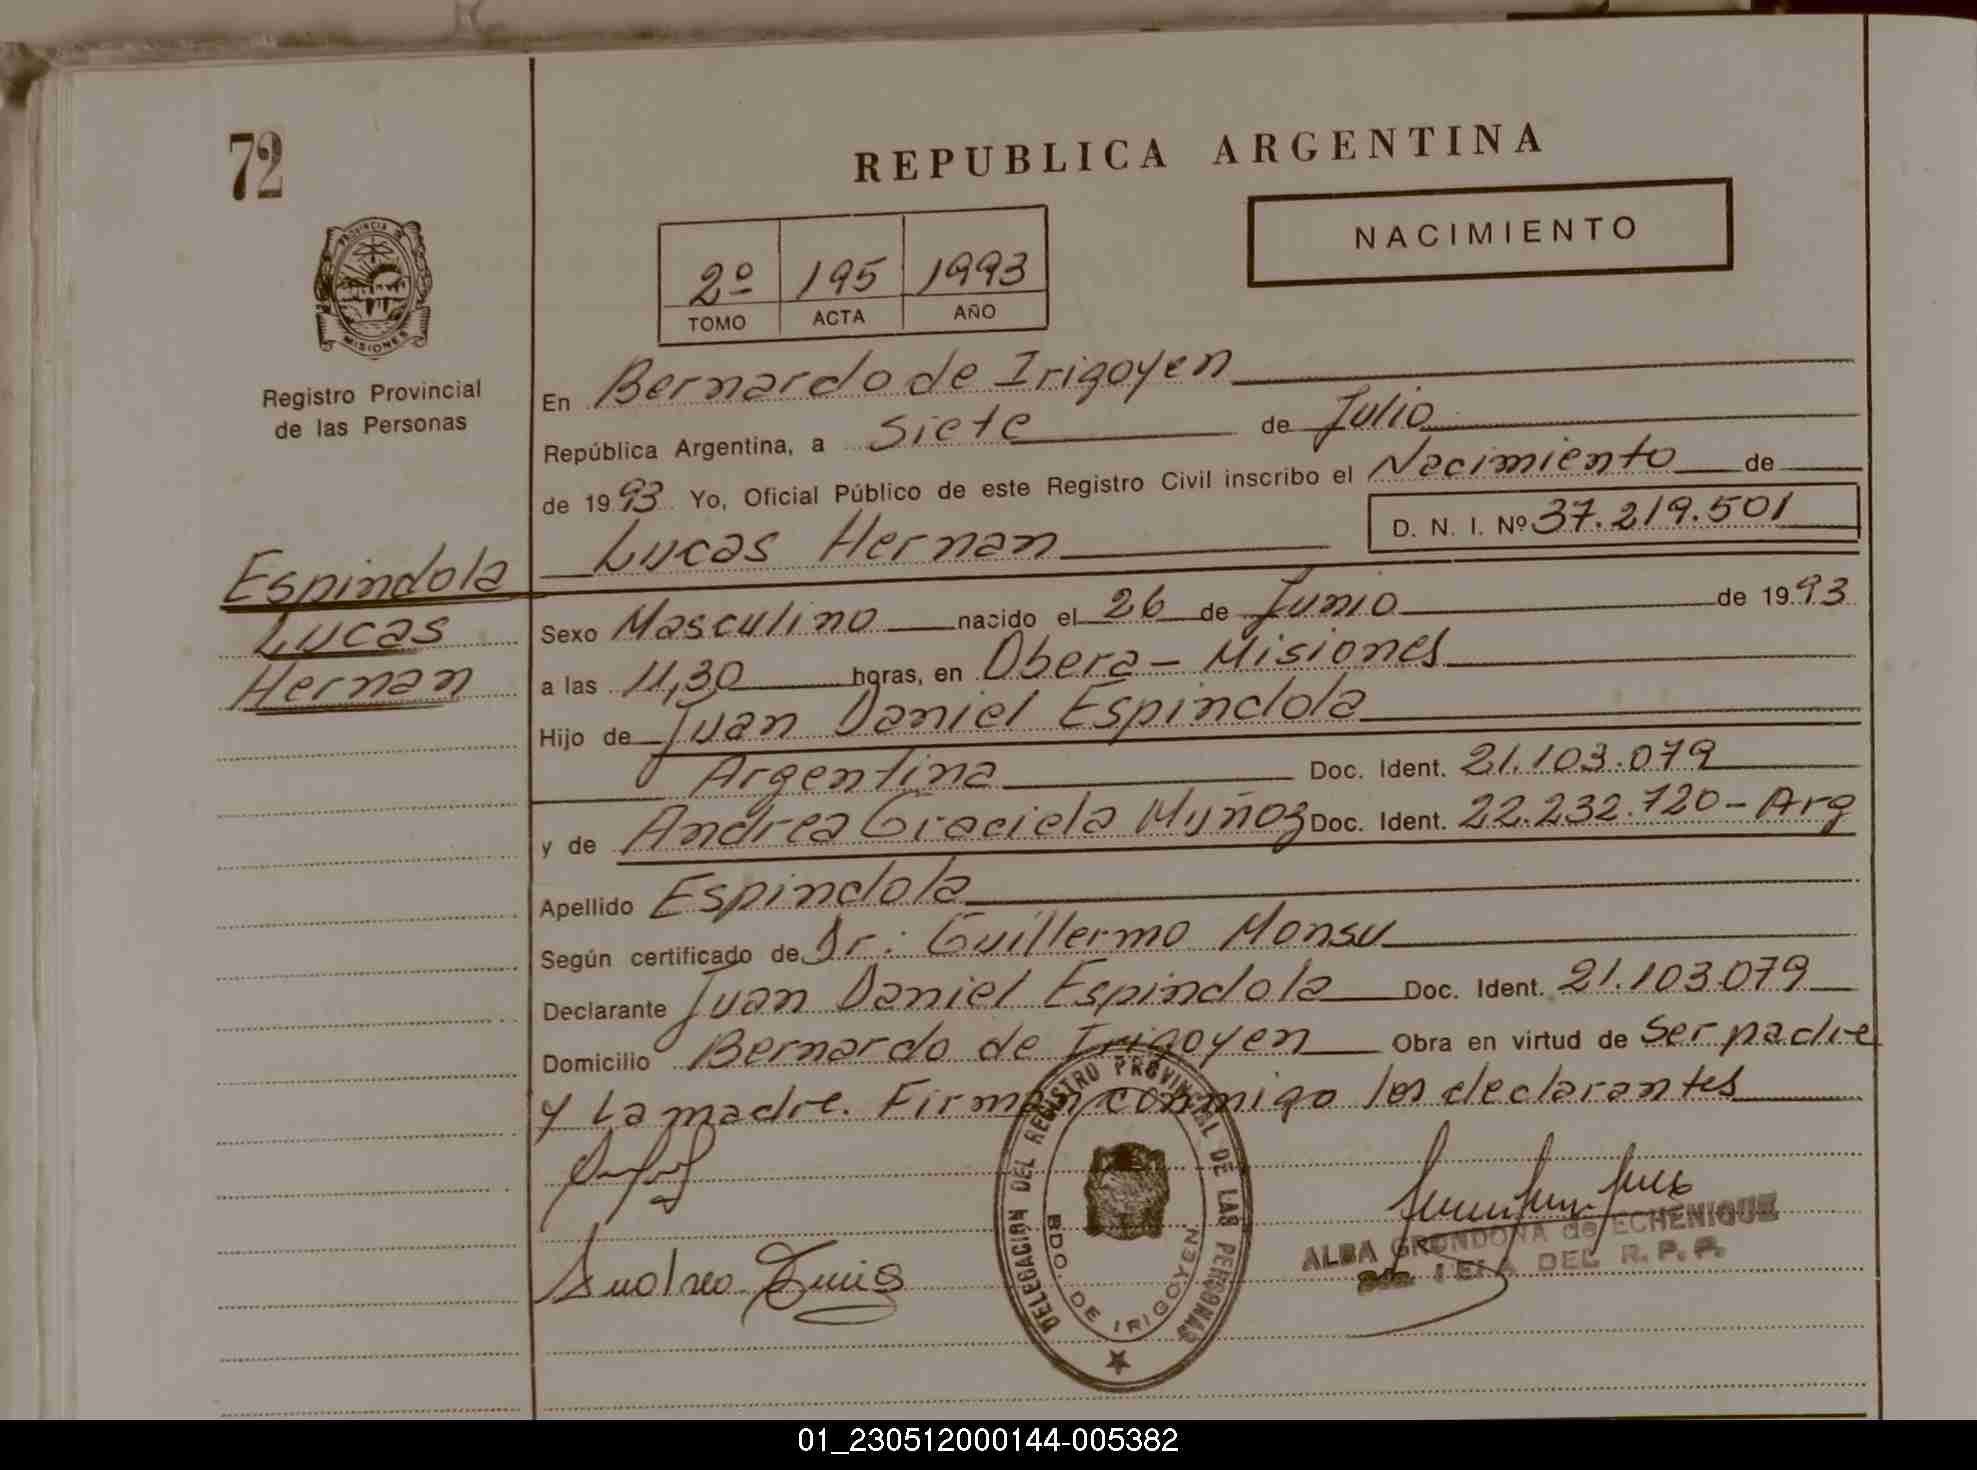 72
REPUBLICA ARGENTINA
NACIMIENTO
2º 195 1993
TOMO ACTA AÑO
PROVINCIA DE
MISIONES
Registro Provincial
de las Personas
En Bernardo de Irigoyen
República Argentina, a Siete de Julio
de 1993 Yo, Oficial Público de este Registro Civil inscribo el Nacimiento de
Lucas Hernan D. N. I. Nº 37.219.501
Espindola
Lucas
Hernan
Sexo Masculino nacido el 26 de Junio de 1993
a las 11,30 horas, en Obera - Misiones
Hijo de Juan Daniel Espindola
Argentina Doc. Ident. 21.103.079
y de Andrea Graciela Muñoz Doc. Ident. 22.232.720 - Arg
Apellido Espindola
Según certificado de Dr: Guillermo Monsu
Declarante Juan Daniel Espindola Doc. Ident. 21.103.079
Domicilio Bernardo de Irigoyen Obra en virtud de Ser padre
y La madre. Firman conmigo los declarantes
DELEGACION DEL REGISTRO PROVINCIAL DE LAS PERSONAS
BDO. DE IRIGOYEN
ALBA GRONDONA de ECHENIQUE
DEL R. P. P.
01_230512000144-005382